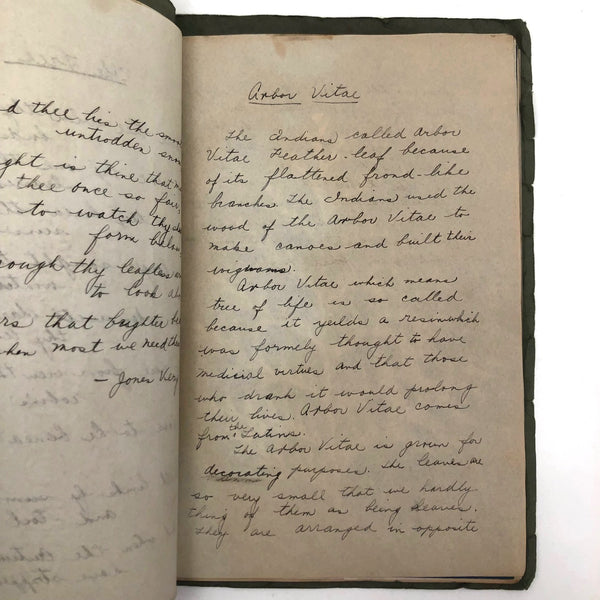 d thee lies the smoo
untrodden snow
ght is thine that m
thee once so fair,
to watch thy
form below
rough thy leafless
to look
rs that brighter be
hen most we need the
— Jones Very
Arbor Vitae
The Indians called Arbor
Vitae Feather-leaf because
of its flattened frond-like
branches. The Indians used the
wood of the Arbor Vitae to
make canoes and built their
wigwams.
Arbor Vitae which means
tree of life is so called
because it yeilds a resin which
was formely thought to have
medicial virtues and that those
who drank it would prolong
their lives. Arbor Vitae comes
from the Latins.
The Arbor Vitae is grown for
decorating purposes. The leaves are
so very small that we hardly
thing of them as being leaves.
They are arranged in opposite